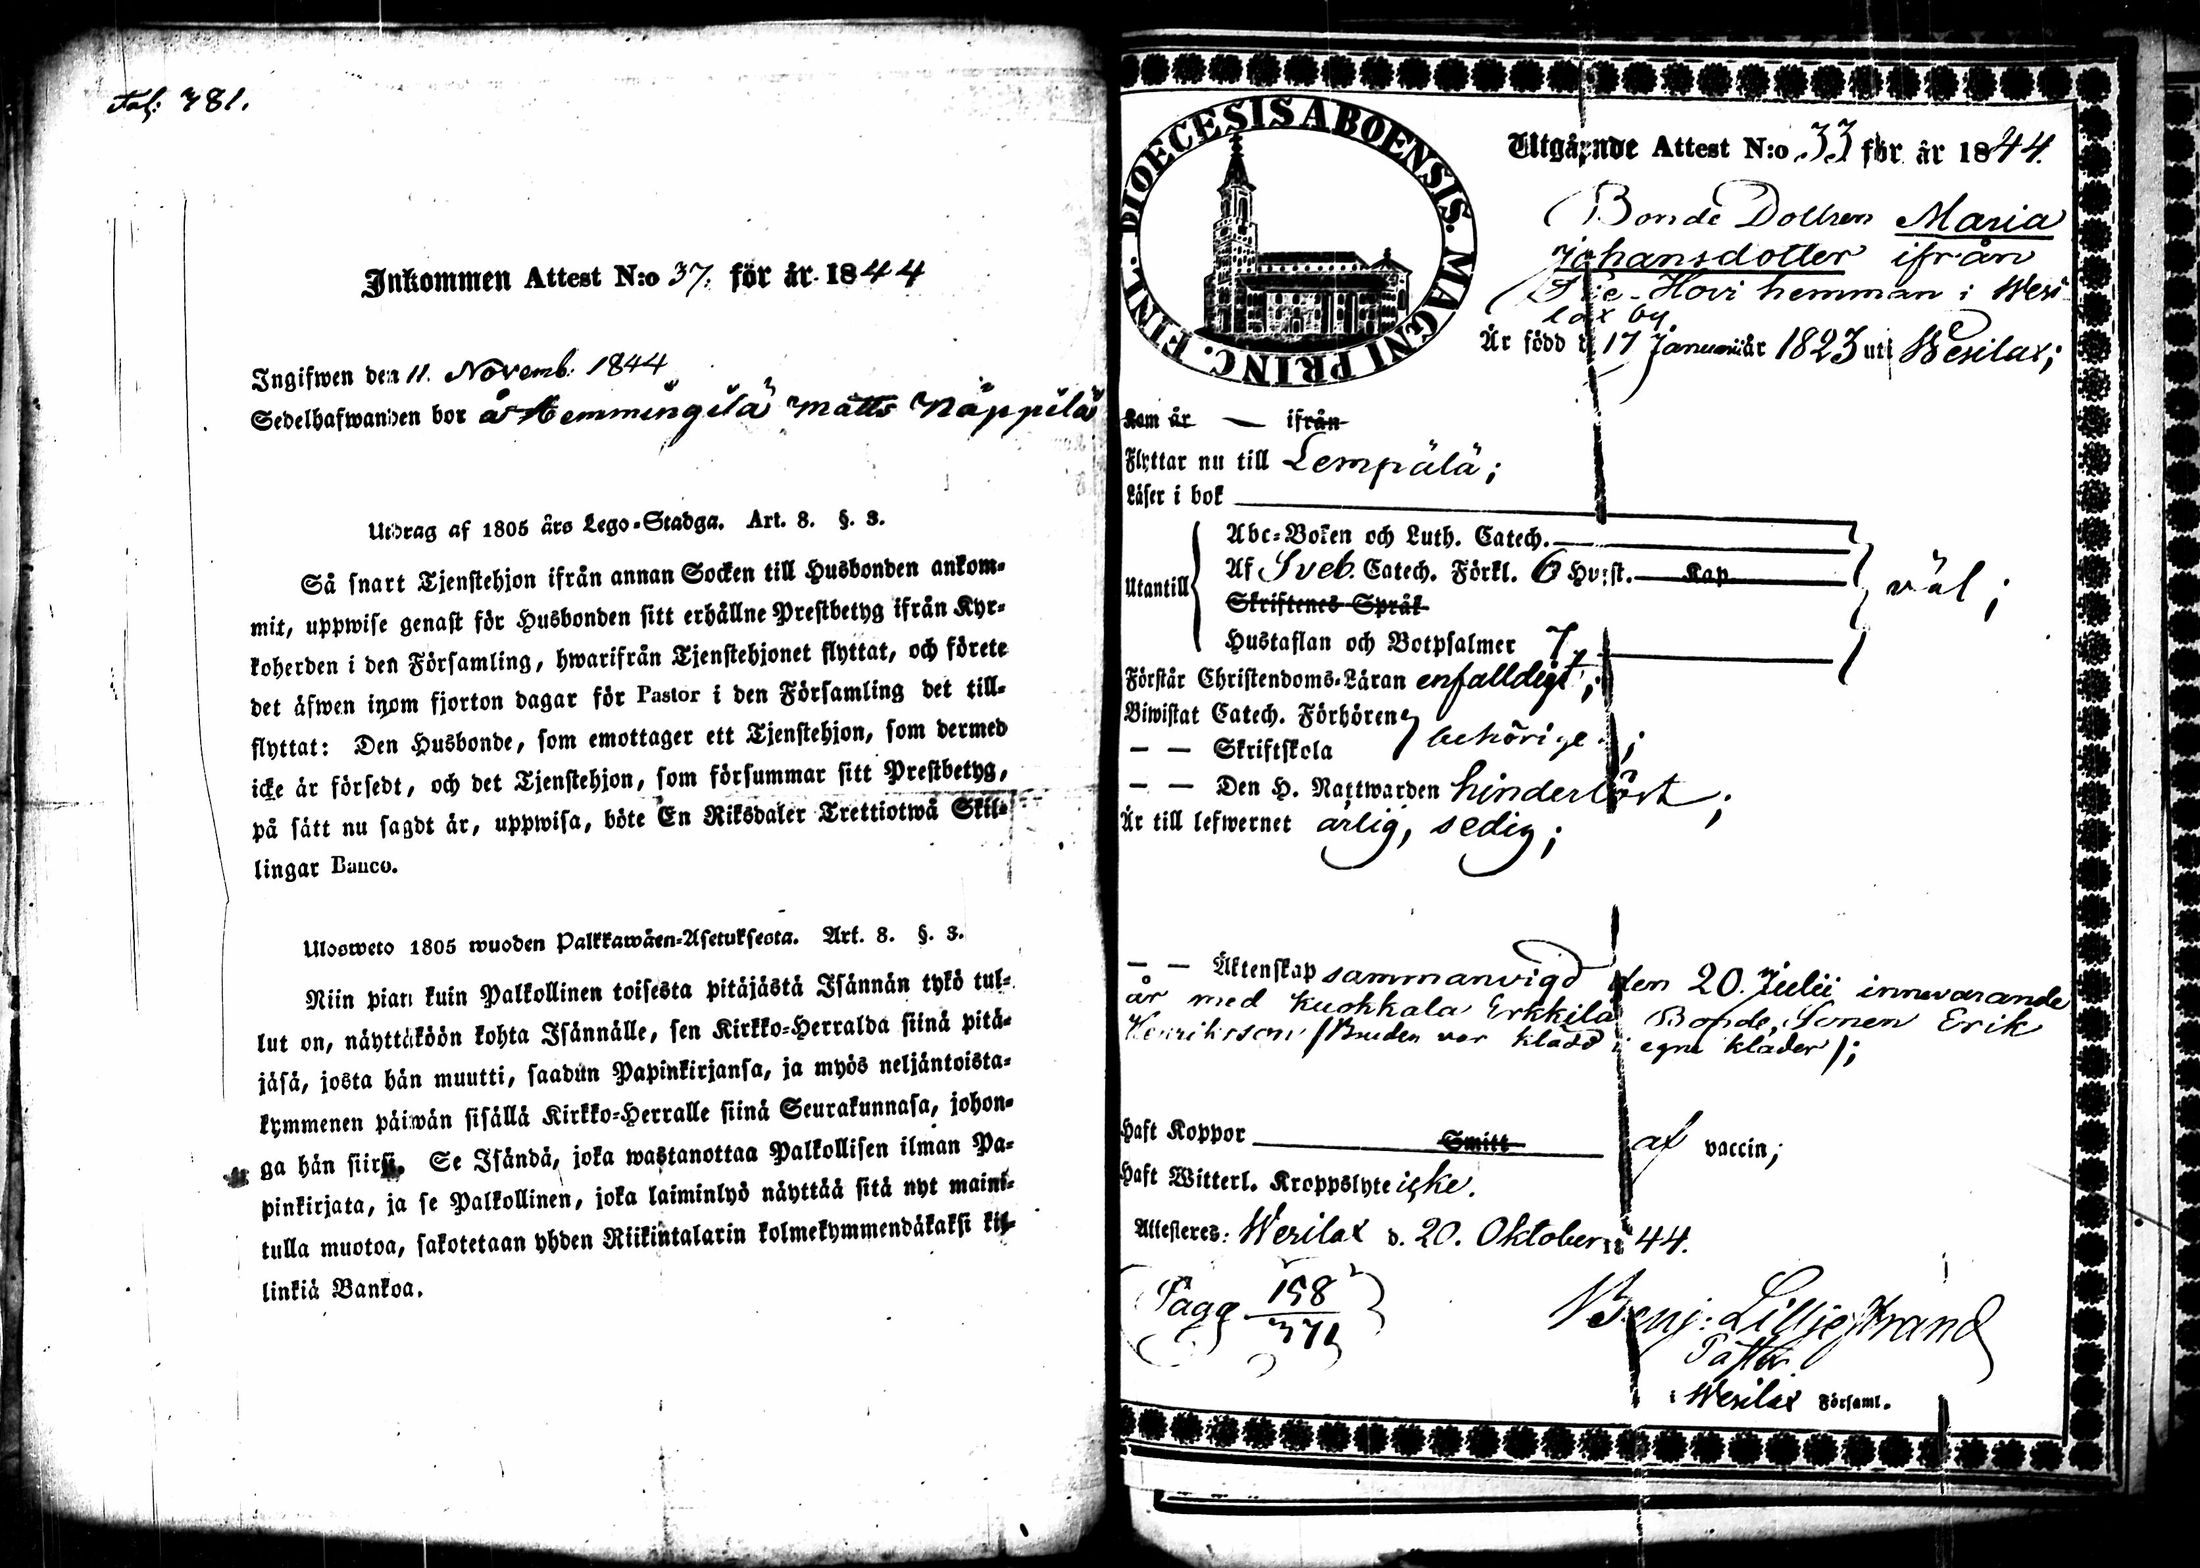 Fol: 781.
Inkommen Attest N:o 37. för år 1844
Ingifwen den 11. Novemb: 1844
Sedelhafwanden bor å Hemmingilä Matts Näppilä
Utdrag af 1805 års Lego-Stadga. Art. 8. §. 3.
Så snart Tjenstehjon ifrån annan Socken till Husbonden ankom-
mit, uppwise genast för Husbonden sitt erhållne Prestbetyg ifrån Kyr-
koherden i den Församling, hwarifrån Tjenstehjonet flyttat, och förete
det äfwen inom fjorton dagar för Pastor i den Församling det till-
flyttat: Den Husbonde, som emottager ett Tjenstehjon, som dermed
icke är försedt, och det Tjenstehjon, som försummar sitt Prestbetyg,
på sätt nu sagdt är, uppwisa, böte En Riksdaler Trettiotwå Skil-
lingar Banco.
Ulosweto 1805 wuoden Palkkawäen-Asetuksesta. Art. 8. §. 3.
Niin pian kuin Palkollinen toisesta pitäjästä Isännän tykö tul-
lut on, näyttäköön kohta Isännälle, sen Kirkko-Herralda siinä pitä-
jäsä, josta hän muutti, saadun Papinkirjansa, ja myös neljäntoista-
kymmenen päiwän sisällä Kirkko-Herralle siinä Seurakunnasa, johon-
ga hän siirsi. Se Isändä, joka wastanottaa Palkollisen ilman Pa-
pinkirjata, ja se Palkollinen, joka laiminlyö näyttää sitä nyt maini-
tulla muotoa, sakotetaan yhden Riikintalarin kolmekymmendäkaksi kil-
linkiä Bankoa.
DIOECESIS ABOENSIS. MAGNI PRINC. FINL.
Utgående Attest N:o 33 för år 1844.
Bonde Dottren Maria
Johansdotter ifrån
Hovi hemman i Wesi
lax by
Är född d 17 Januarii år 1823 uti Wesilax;
Kom år — ifrån
Flyttar nu till Lempälä;
Läser i bok
Utantill
Abc-Boken och Luth. Catech.
Af Sveb. Catech. Förkl. 6 Hufst. Kap
Skriftenes Språk
Hustaflan och Botpsalmer 7.
väl;
Förstår Christendoms-Läran enfalldigt;
Biwistat Catech. Förhören
— — Skriftskola
behörige;
— — Den H. Nattwarden hinderlöst;
Är till lefwernet ärlig, sedig;
— — Äktenskap sammanvigd den 20. Julii innevarande
år med Kuokkala Erkkilä Bonde Sonen Erik
Henriksson (Bruden var klädd i egna kläder);
Haft Koppor Smitt af vaccin;
Haft Witterl. Kroppslyte icke.
Attesteres: Wesilax d. 20. Oktober 1844.
Pagg 158
371
Benj: Lilljestrand
Pastor
i Wesilax Församl.